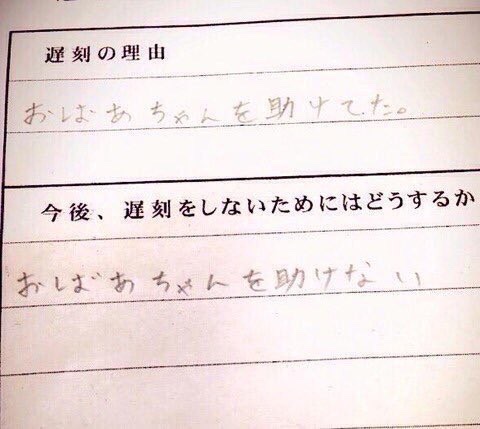 遅刻の理由
おばあちゃんを助けてた。
今後、遅刻をしないためにはどうするか
おばあちゃんを助けない